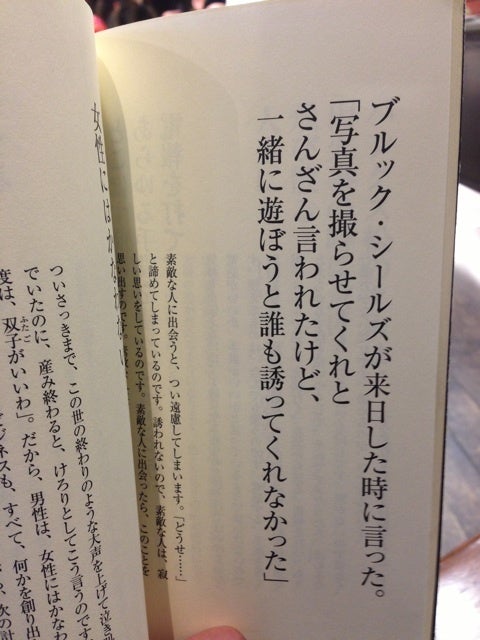 ブルック・シールズが来日した時に言った。
「写真を撮らせてくれと
さんざん言われたけど、
一緒に遊ぼうと誰も誘ってくれなかった」
素敵な人に出会うと、つい遠慮してしまいます。「どうせ……」
と諦めてしまっているのです。誘われないので、素敵な人は、寂
しい思いをしているのです。素敵な人に出会ったら、このことを
思い出すのです。
女性にはかな
ついさっきまで、この世の終わりのような大声を上げて泣き
でいたのに、産み終わると、けろりとしてこう言うのです
度は、双子がいいわ」。だから、男性は、女性にはかなわ
ジネスも、すべて、何かを創り出
次の計